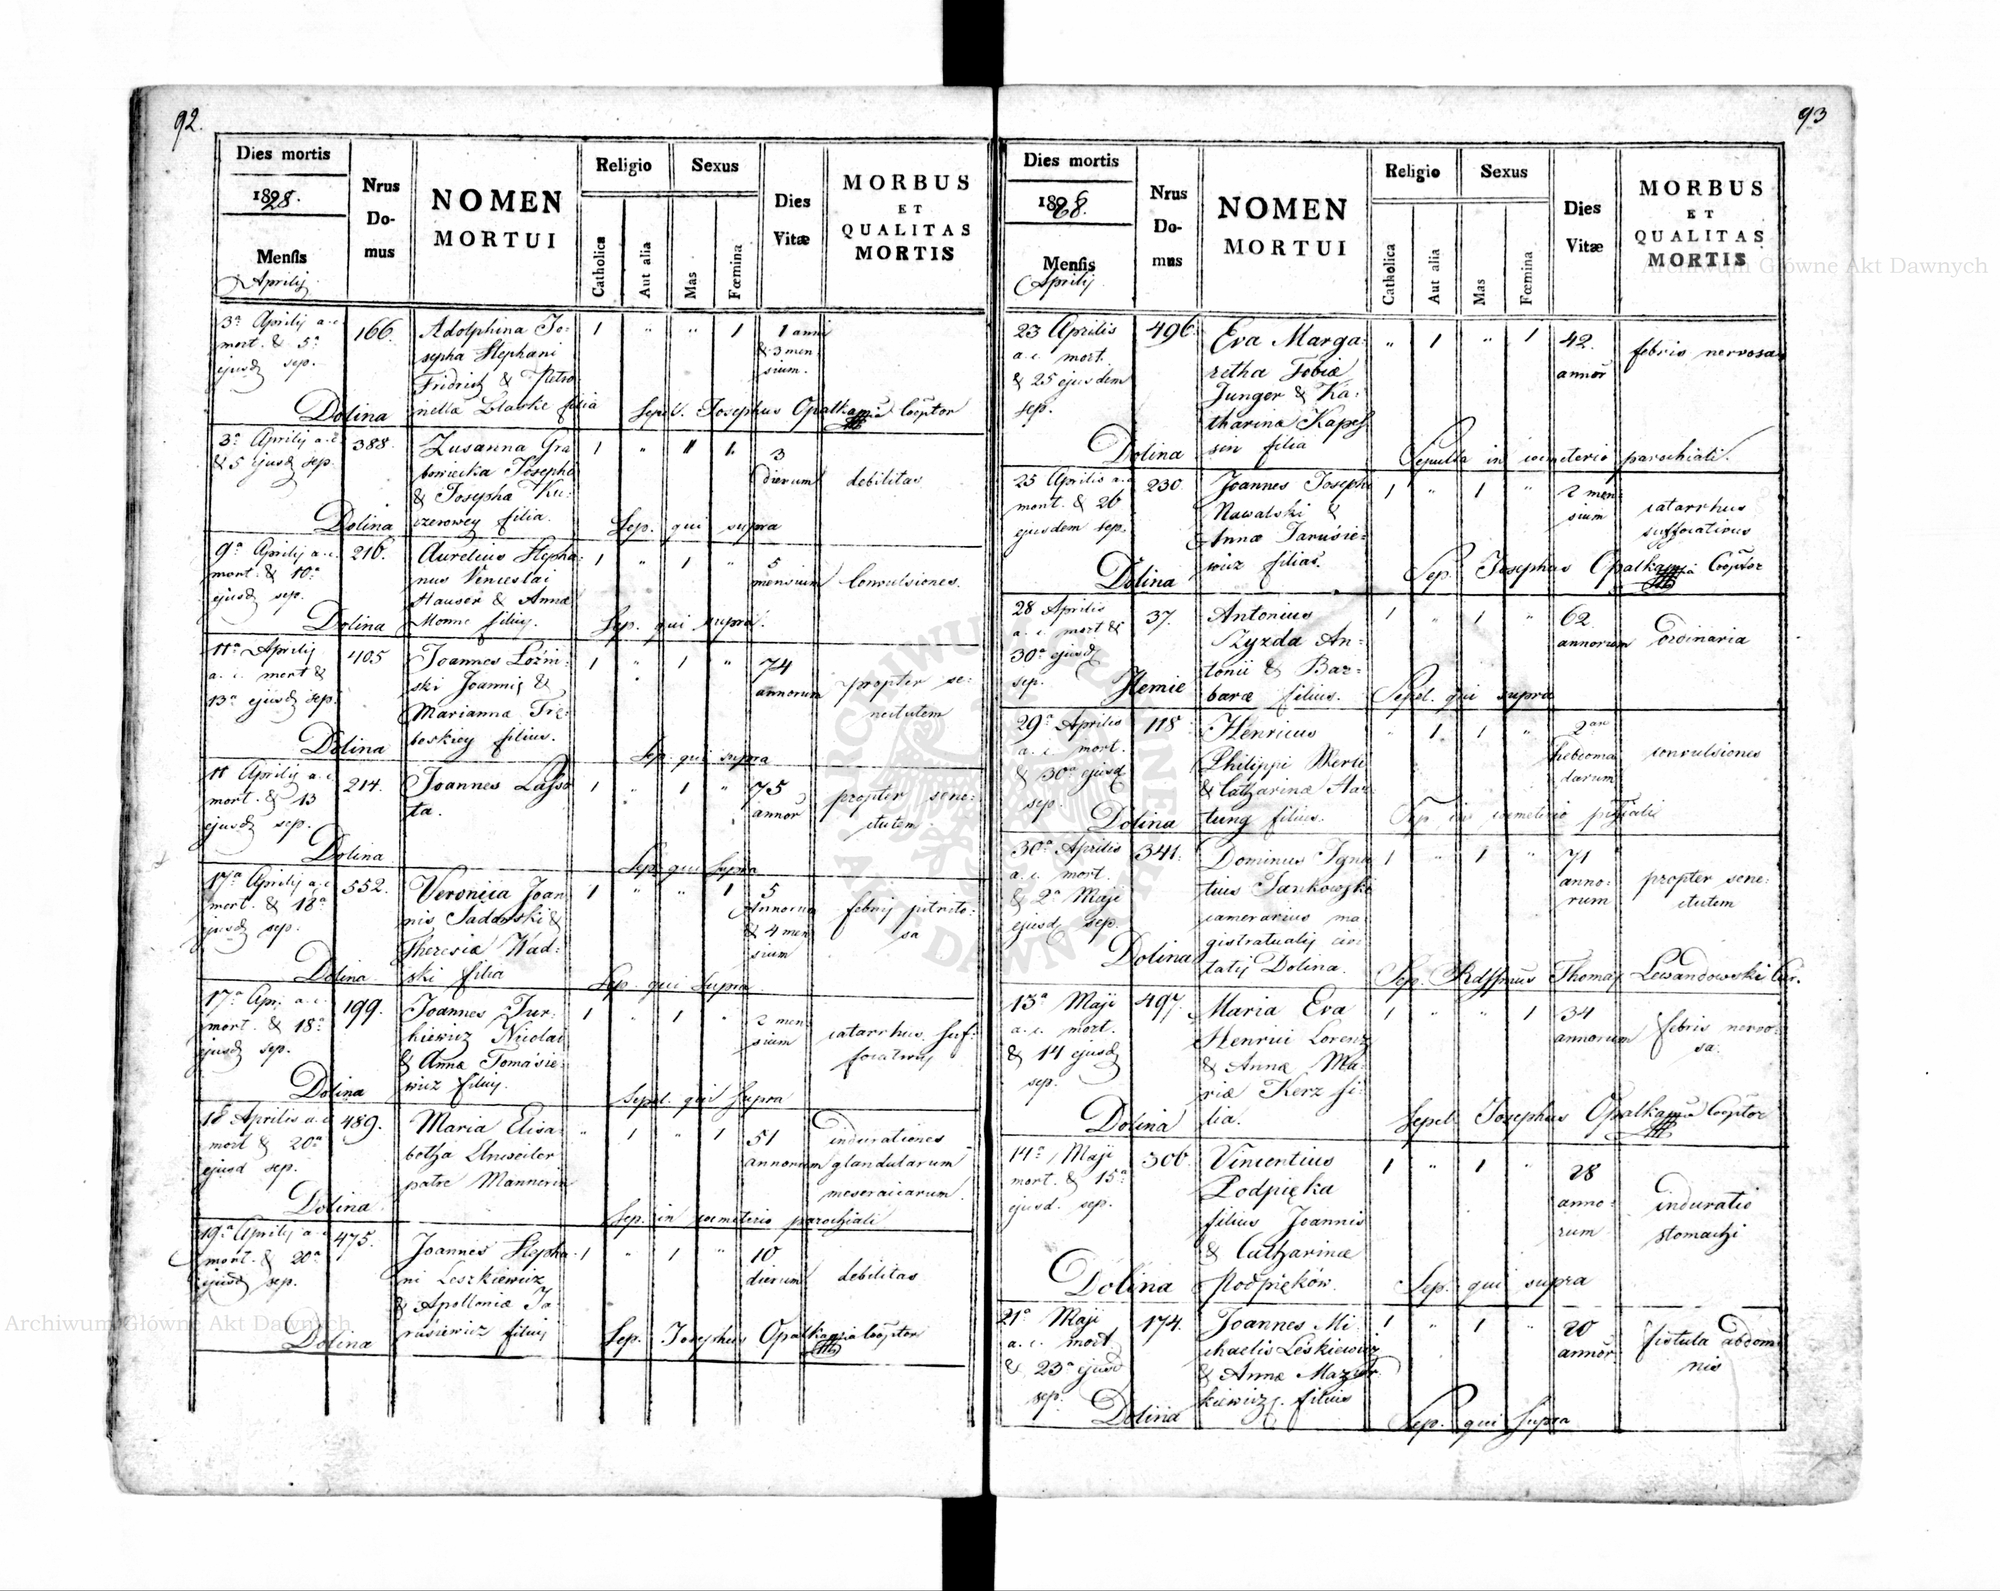 92.
Dies mortis
1828.
Mensis
Aprilij
Nrus
Do-
mus
NOMEN
MORTUI
Religio
Catholica
Aut alia
Sexus
Mas
Fœmina
Dies
Vitæ
MORBUS
ET
QUALITAS
MORTIS
3ª Aprilij a.c.
mort. & 5ª
ejusd sep.
166.
Adolphina Jo-
sepha Stephani
Fridrich & Petro
nella filia
1 " " 1
1 anni
& 3 men
sium.
Dolina
Sepel. Josephus Opalka Cooptor
3ª Aprilij a.c.
& 5 ejusd sep.
388.
Zusanna Gra
bowiecka Josepha
& Josepha Ku-
czerowey filia.
1 " " 1.
3
dierum
debilitas
Dolina
Sep. qui supra
9ª Aprilij a.c.
mort. & 10ª
ejusd sep.
216.
Aurelius Stepha
nus Venceslai
Hauser & Annæ
Monne filiij.
1 " 1 "
5
mensium
Convulsiones.
Dolina
Sep. qui supra.
11ª Aprilij
a. c. mort &
13ª ejusd sep.
405
Joannes Lozin-
ski Joannis &
Marianna Tre-
boskiey filius.
1 " 1 "
74
annorum
propter se-
nectutem
Dolina
Sep. qui supra
11 Aprilij a.c.
mort. & 13
ejusd sep.
214.
Joannes Lasso
ta.
1 " 1 "
75
annor
propter sene-
ctutem.
Dolina
Sep. qui supra
17ª Aprilij a.c.
mort. & 18ª
ejusd sep.
552.
Veronica Joan
nis Sadowski &
Theresiæ Wad-
ski filia
1 " " 1
5
Annorum
& 4 men
sium
febrij pituito-
sa
Dolina
Sep. qui supra.
17ª Apr. a.c.
mort. & 18ª
ejusd sep.
199.
Joannes Tur-
kiewicz Nicolai
& Annæ Tomasie-
wicz filiij.
1 " 1 "
2 men
sium
catarrhus suf-
focativij
Dolina
Sepel. qui supra
18 Aprilis a.c.
mort & 20ª
ejusd sep.
489.
Maria Elisa-
betha Unweiler
patre Mannerin
" 1 " 1
51
annorum
indurationes
glandularum
meseraicarum.
Dolina.
Sep. in coemeterio parochiali
19ª Aprilij a.c.
mort. & 20ª
ejusd sep.
475.
Joannes Stepha-
ni Leszkiewicz
& Apolloniæ Ja-
rusiewicz filiij
1 " 1 "
10
dierum
debilitas
Dolina
Sep. Josephus Opalka Cooptor
93
Dies mortis
1828.
Mensis
Aprilij
Nrus
Do-
mus
NOMEN
MORTUI
Religio
Catholica
Aut alia
Sexus
Mas
Fœmina
Dies
Vitæ
MORBUS
ET
QUALITAS
MORTIS
23 Aprilis
a.c. mort.
& 25 ejusdem
sep.
496.
Eva Marga-
retha Tobiæ
Junger & Ka-
tharina Kapes
sin filia
" 1 " 1
42.
annor
febris nervosa
Dolina
Sepulta in coemeterio parochiali.
25 Aprilis a.c.
mort. & 26
ejusdem sep.
230.
Joannes Josephi
Nawalski &
Annæ Jarusie-
wicz filias.
1 " 1 "
2 men
sium
catarrhus
suffocativus
Dolina
Sep. Josephus Opalka Cooptor
28 Aprilis
a.c. mort &
30ª ejusd
sep.
37.
Antonius
Szyzda An-
tonii & Bar-
baræ filius.
1 " 1 "
62.
annorum
Ordinaria
Hemie
Sepel. qui supra
29ª Aprilis
a.c. mort.
& 30ª ejusd
sep.
118
Henricus
Philippi Werli
& Catharinæ Har-
tung filius.
" 1 1 "
hebdoma
darum
convulsiones
Dolina
Sep. in coemeterio
30ª Aprilis
a.c. mort.
& 2ª Maji
ejusd sep.
341.
Dominus Igna
tius Jankowski
camerarius ma-
gistratualij civi
tatij Dolina.
1 " 1 "
71
anno-
rum
propter sene-
ctutem
Dolina
Sep. Thomas Lewandowski Cur.
13ª Maji
a.c. mort.
& 14 ejusd
sep.
497.
Maria Eva
Henrici Lorenz
& Annæ Ma-
riæ Kerz fi-
lia.
1 " " 1
34
annorum
febris nervo-
sa.
Dolina
Sepel. Josephus Opalka Cooptor
14ª Maji
mort. & 15ª
ejusd. sep.
306.
Vincentius
Podpięka
filius Joannis
& Catharinæ
Podpięków.
1 " 1 "
28
anno-
rum
induratio
stomachi
Dolina
Sep. qui supra
21ª Maji
a.c. mort
& 23ª ejusd
sep.
174.
Joannes Mi-
chaelis Leskiewicz
& Annæ Mazur
kiewicz. filius
1 " 1 "
20
annor.
fistula abdomi
nis
Dolina
Sep. qui supra
Archiwum Główne Akt Dawnych
Archiwum Główne Akt Dawnych
ARCHIWUM GŁÓWNE AKT DAWNYCH